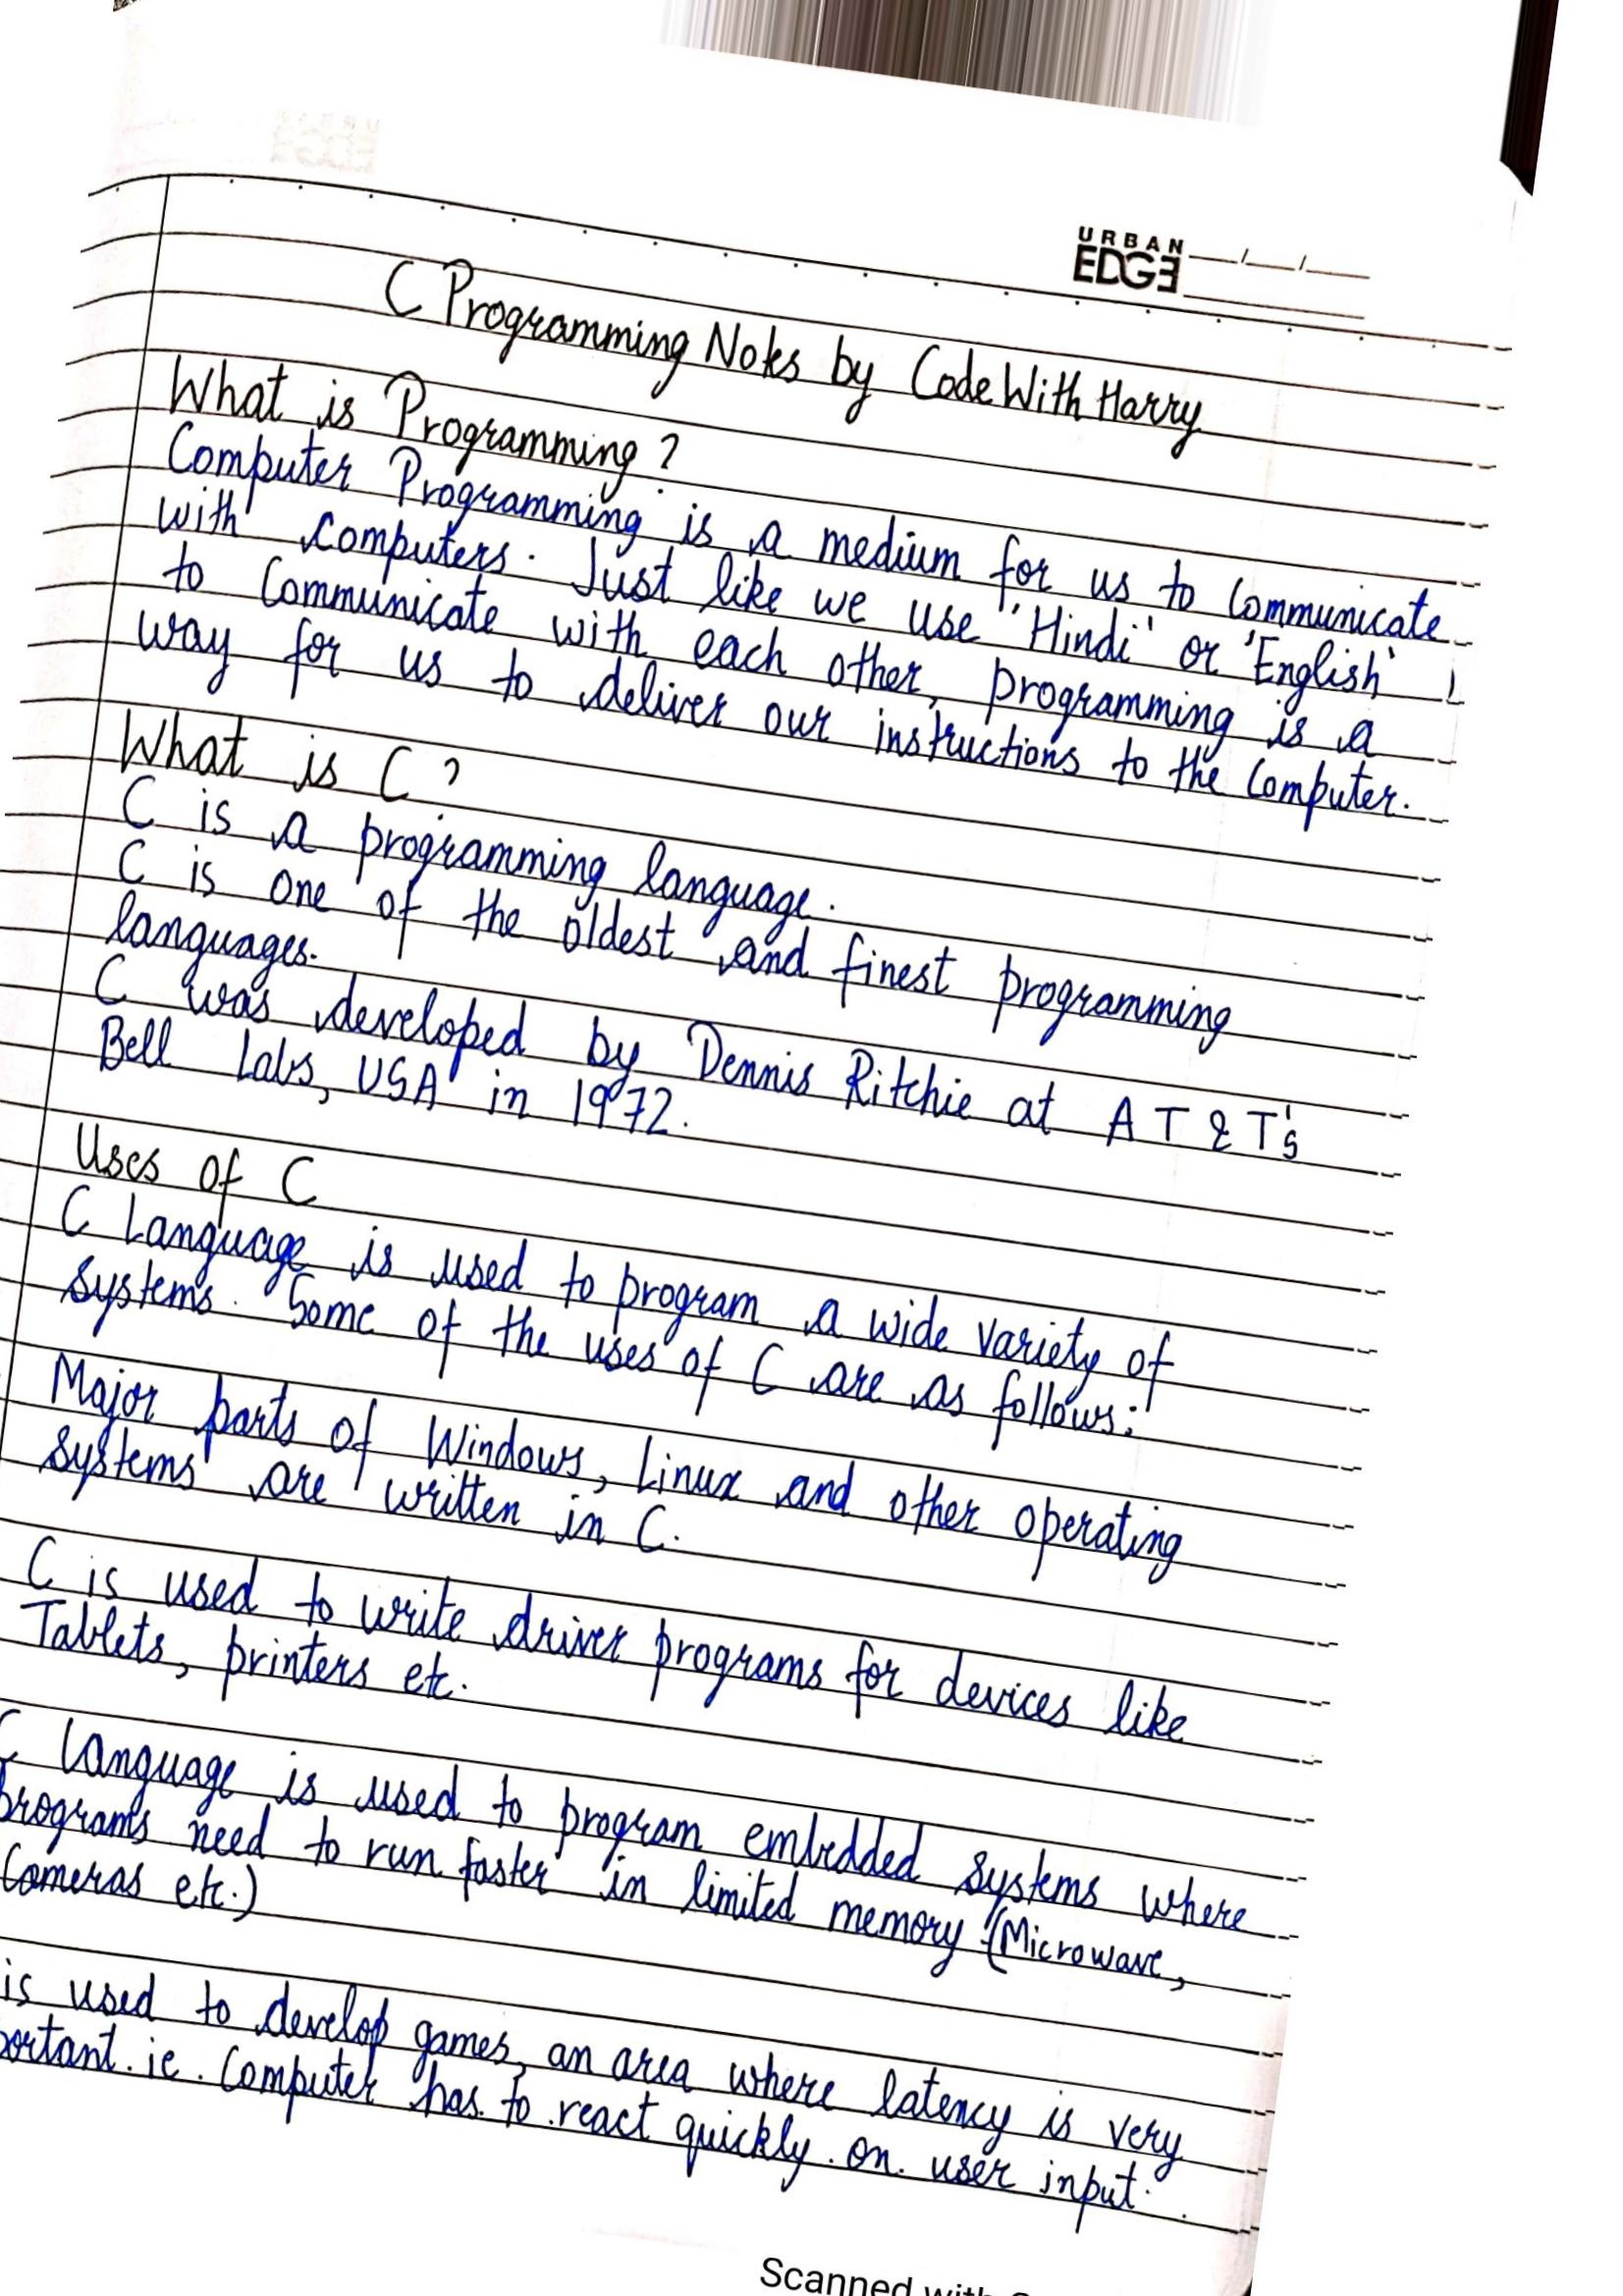 URBAN
EDGE
C Programming Notes by CodeWithHarry
What is Programming?
Computer Programming is a medium for us to Communicate
with computers. Just like we use 'Hindi' or 'English'
to Communicate with each other, programming is a
way for us to deliver our instructions to the Computer.
What is C?
C is a programming language.
C is one of the oldest and finest programming
languages.
C was developed by Dennis Ritchie at AT&T's
Bell Labs, USA in 1972.
Uses of C
C Language is used to program a wide variety of
systems. Some of the uses of C are as follows:
Major parts of Windows, Linux and other operating
systems are written in C.
C is used to write driver programs for devices like
Tablets, printers etc.
C language is used to program embedded systems where
programs need to run faster in limited memory (Microwave,
Cameras etc.)
is used to develop games, an area where latency is very
portant. ie. Computer has to react quickly on user input.
Scanned with